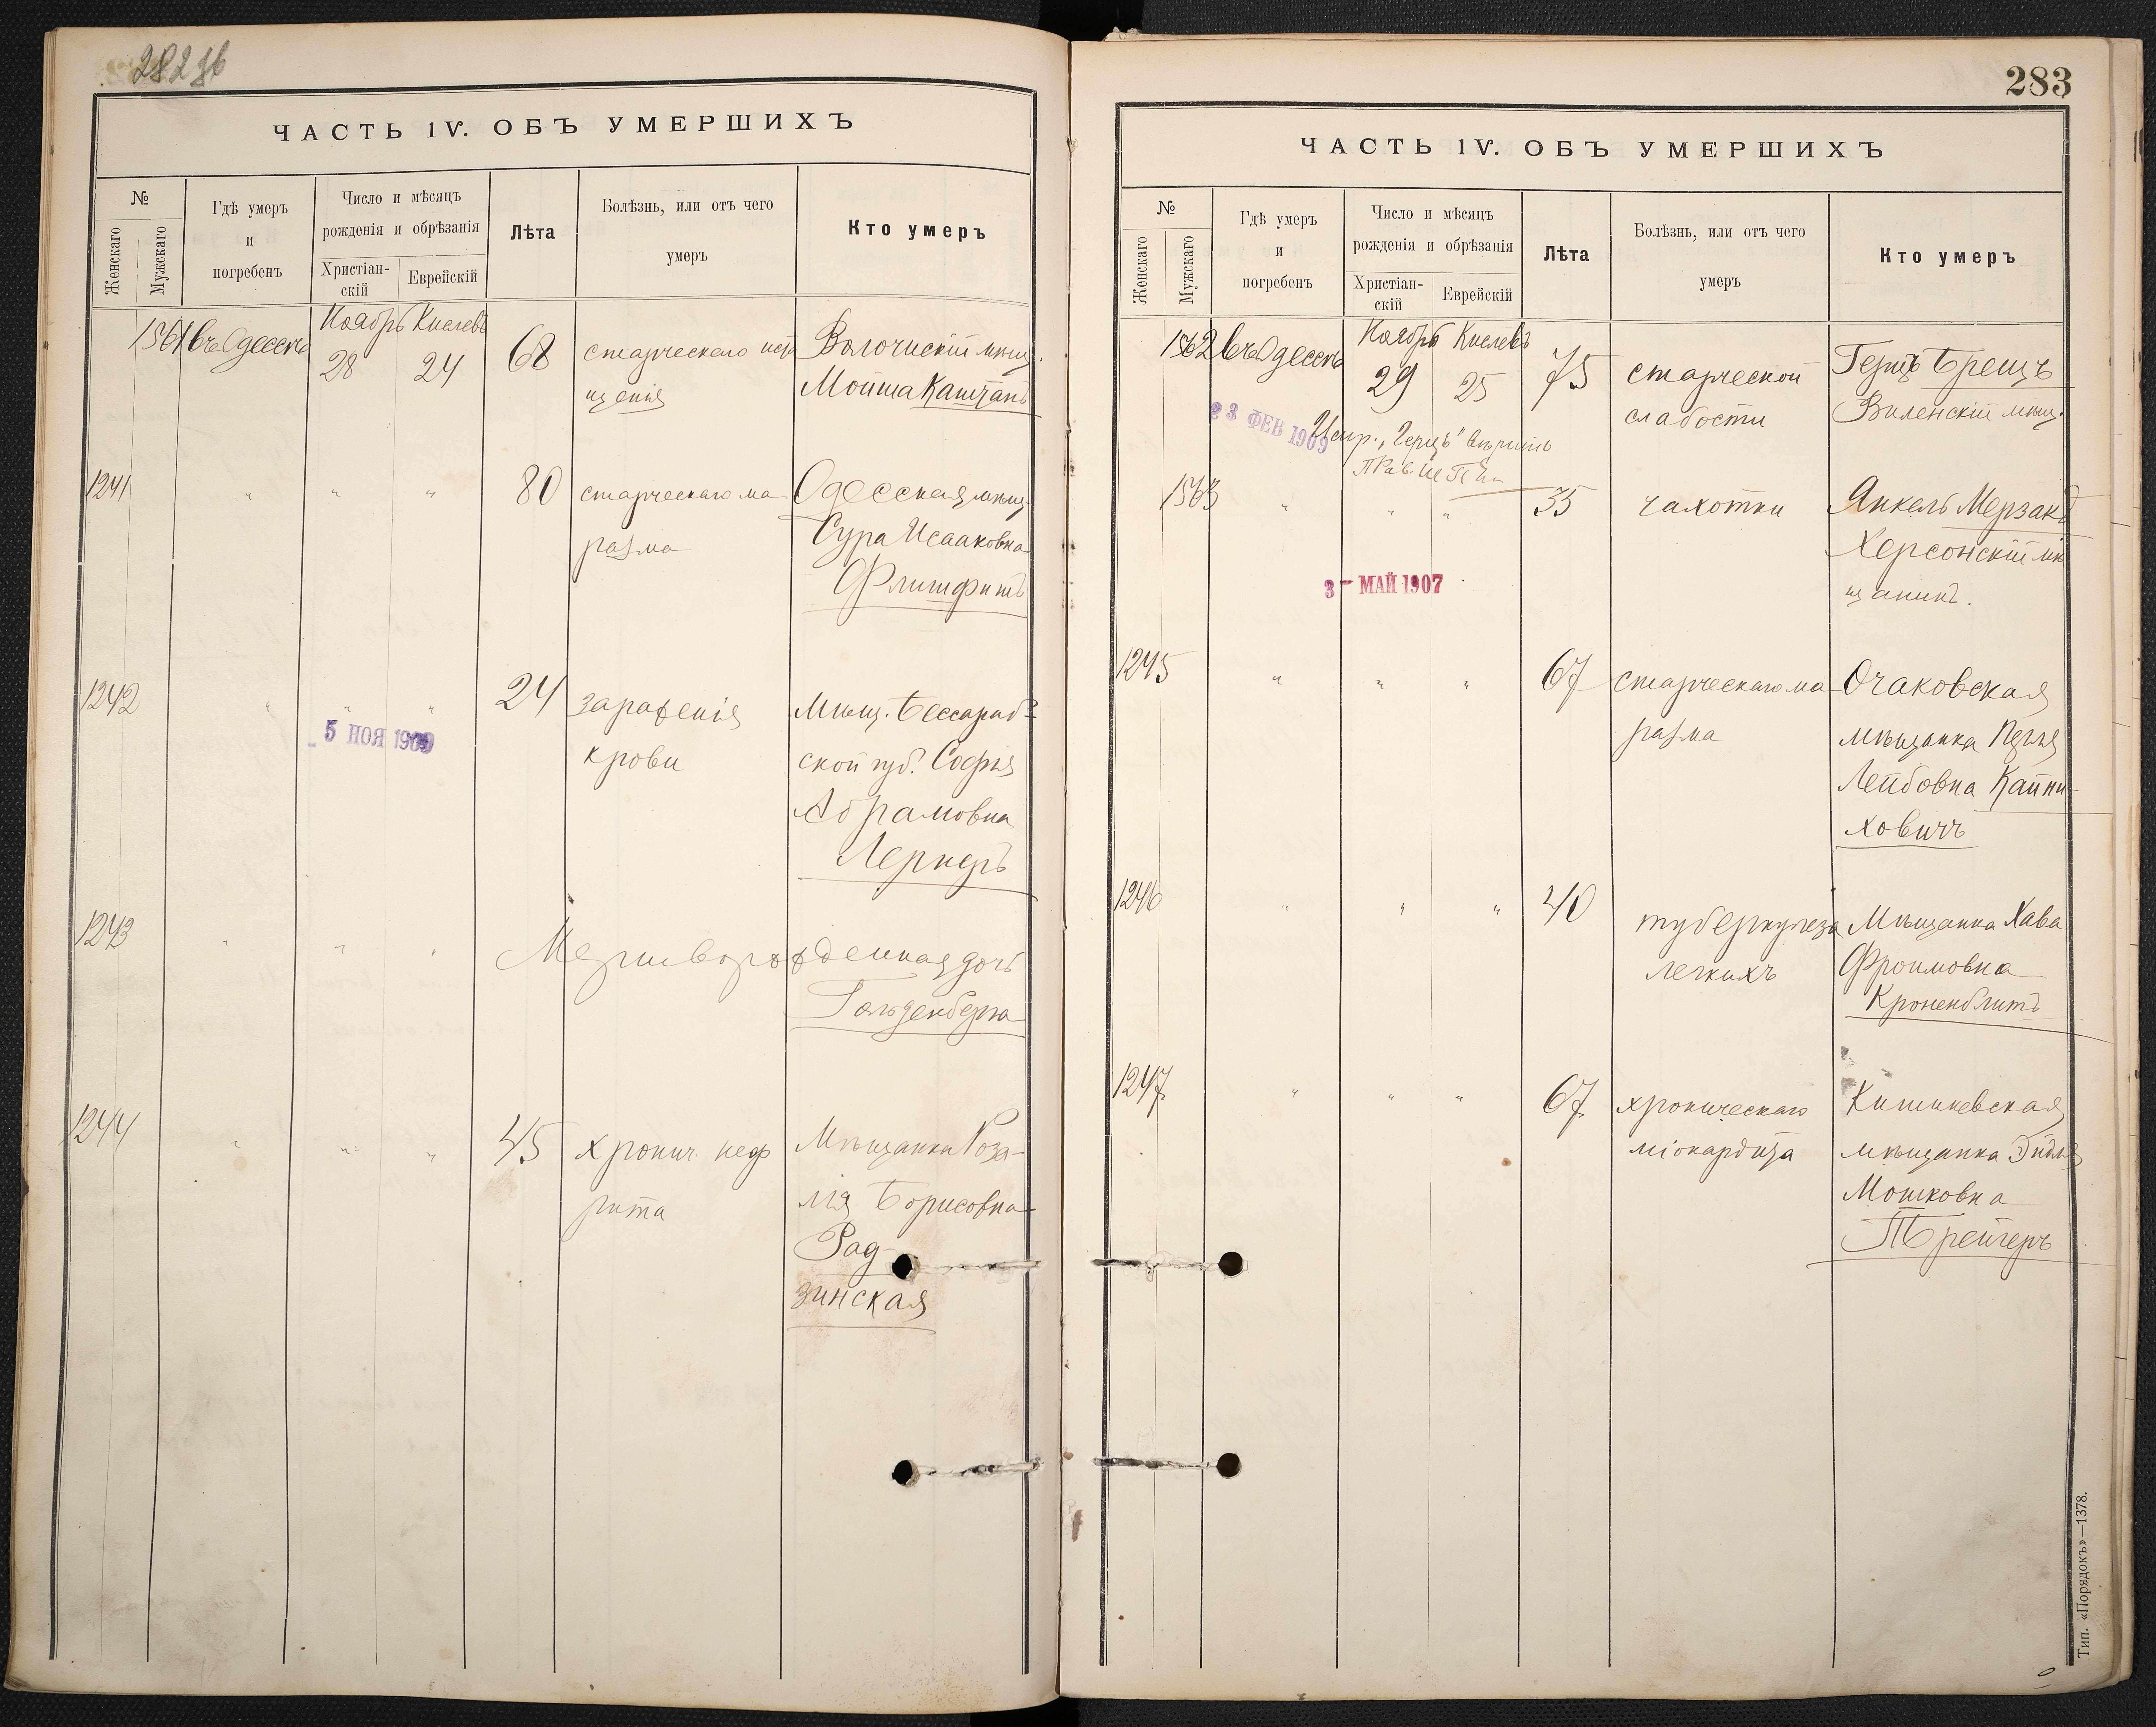 282 об
ЧАСТЬ IV. ОБЪ УМЕРШИХЪ
№
Женскаго
Мужскаго
Гдѣ умеръ
и
погребенъ
Число и мѣсяцъ
рожденія и обрѣзанія
Христіан-
скій
Еврейскій
Лѣта
Болѣзнь, или отъ чего
умеръ
Кто умеръ
1561 въ Одессѣ Ноябрь Кислевъ
28 24 68 старческаго исто
щенія
Волочискій мѣщ.
Мойша Каштанъ
1241 " " " 80 старческаго ма
разма
Одесская мѣщ.
Сура Исааковна
Флишфишъ
1242 " " " 24 зараженія
крови
Мѣщ. Бессараб-
ской губ. Софья
Абрамовна
Лернеръ
5 НОЯ 1909
1243 " " " Мертворожденная дочь
Гольденберга
1244 " " " 45 хронич. неф
рита
Мѣщанка Роза-
лія Борисовна
Рад-
зинская
283
ЧАСТЬ IV. ОБЪ УМЕРШИХЪ
№
Женскаго
Мужскаго
Гдѣ умеръ
и
погребенъ
Число и мѣсяцъ
рожденія и обрѣзанія
Христіан-
скій
Еврейскій
Лѣта
Болѣзнь, или отъ чего
умеръ
Кто умеръ
1562 въ Одессѣ Ноябрь Кислевъ
29 25 75 старческой
слабости
Герцъ Брецъ
Виленскій мѣщ.
23 ФЕВ 1909
Испр. "Герцъ" вѣрить
1563 " " " 35 чахотки
Янкель Мерзакъ
Херсонскій мѣ
щанинъ.
3 - МАЙ 1907
1245 " " " 67 старческаго ма
разма
Очаковская
мѣщанка
Лейбовна Кайни-
ховичъ
1246 " " " 40 туберкулеза
легкихъ
Мѣщанка Хава
Фроимовна
Кроненблитъ
1247 " " " 67 хроническаго
міокардита
Кишиневская
мѣщанка Эйдля
Мошковна
Трейгеръ
Тип. «Порядокъ»—1378.